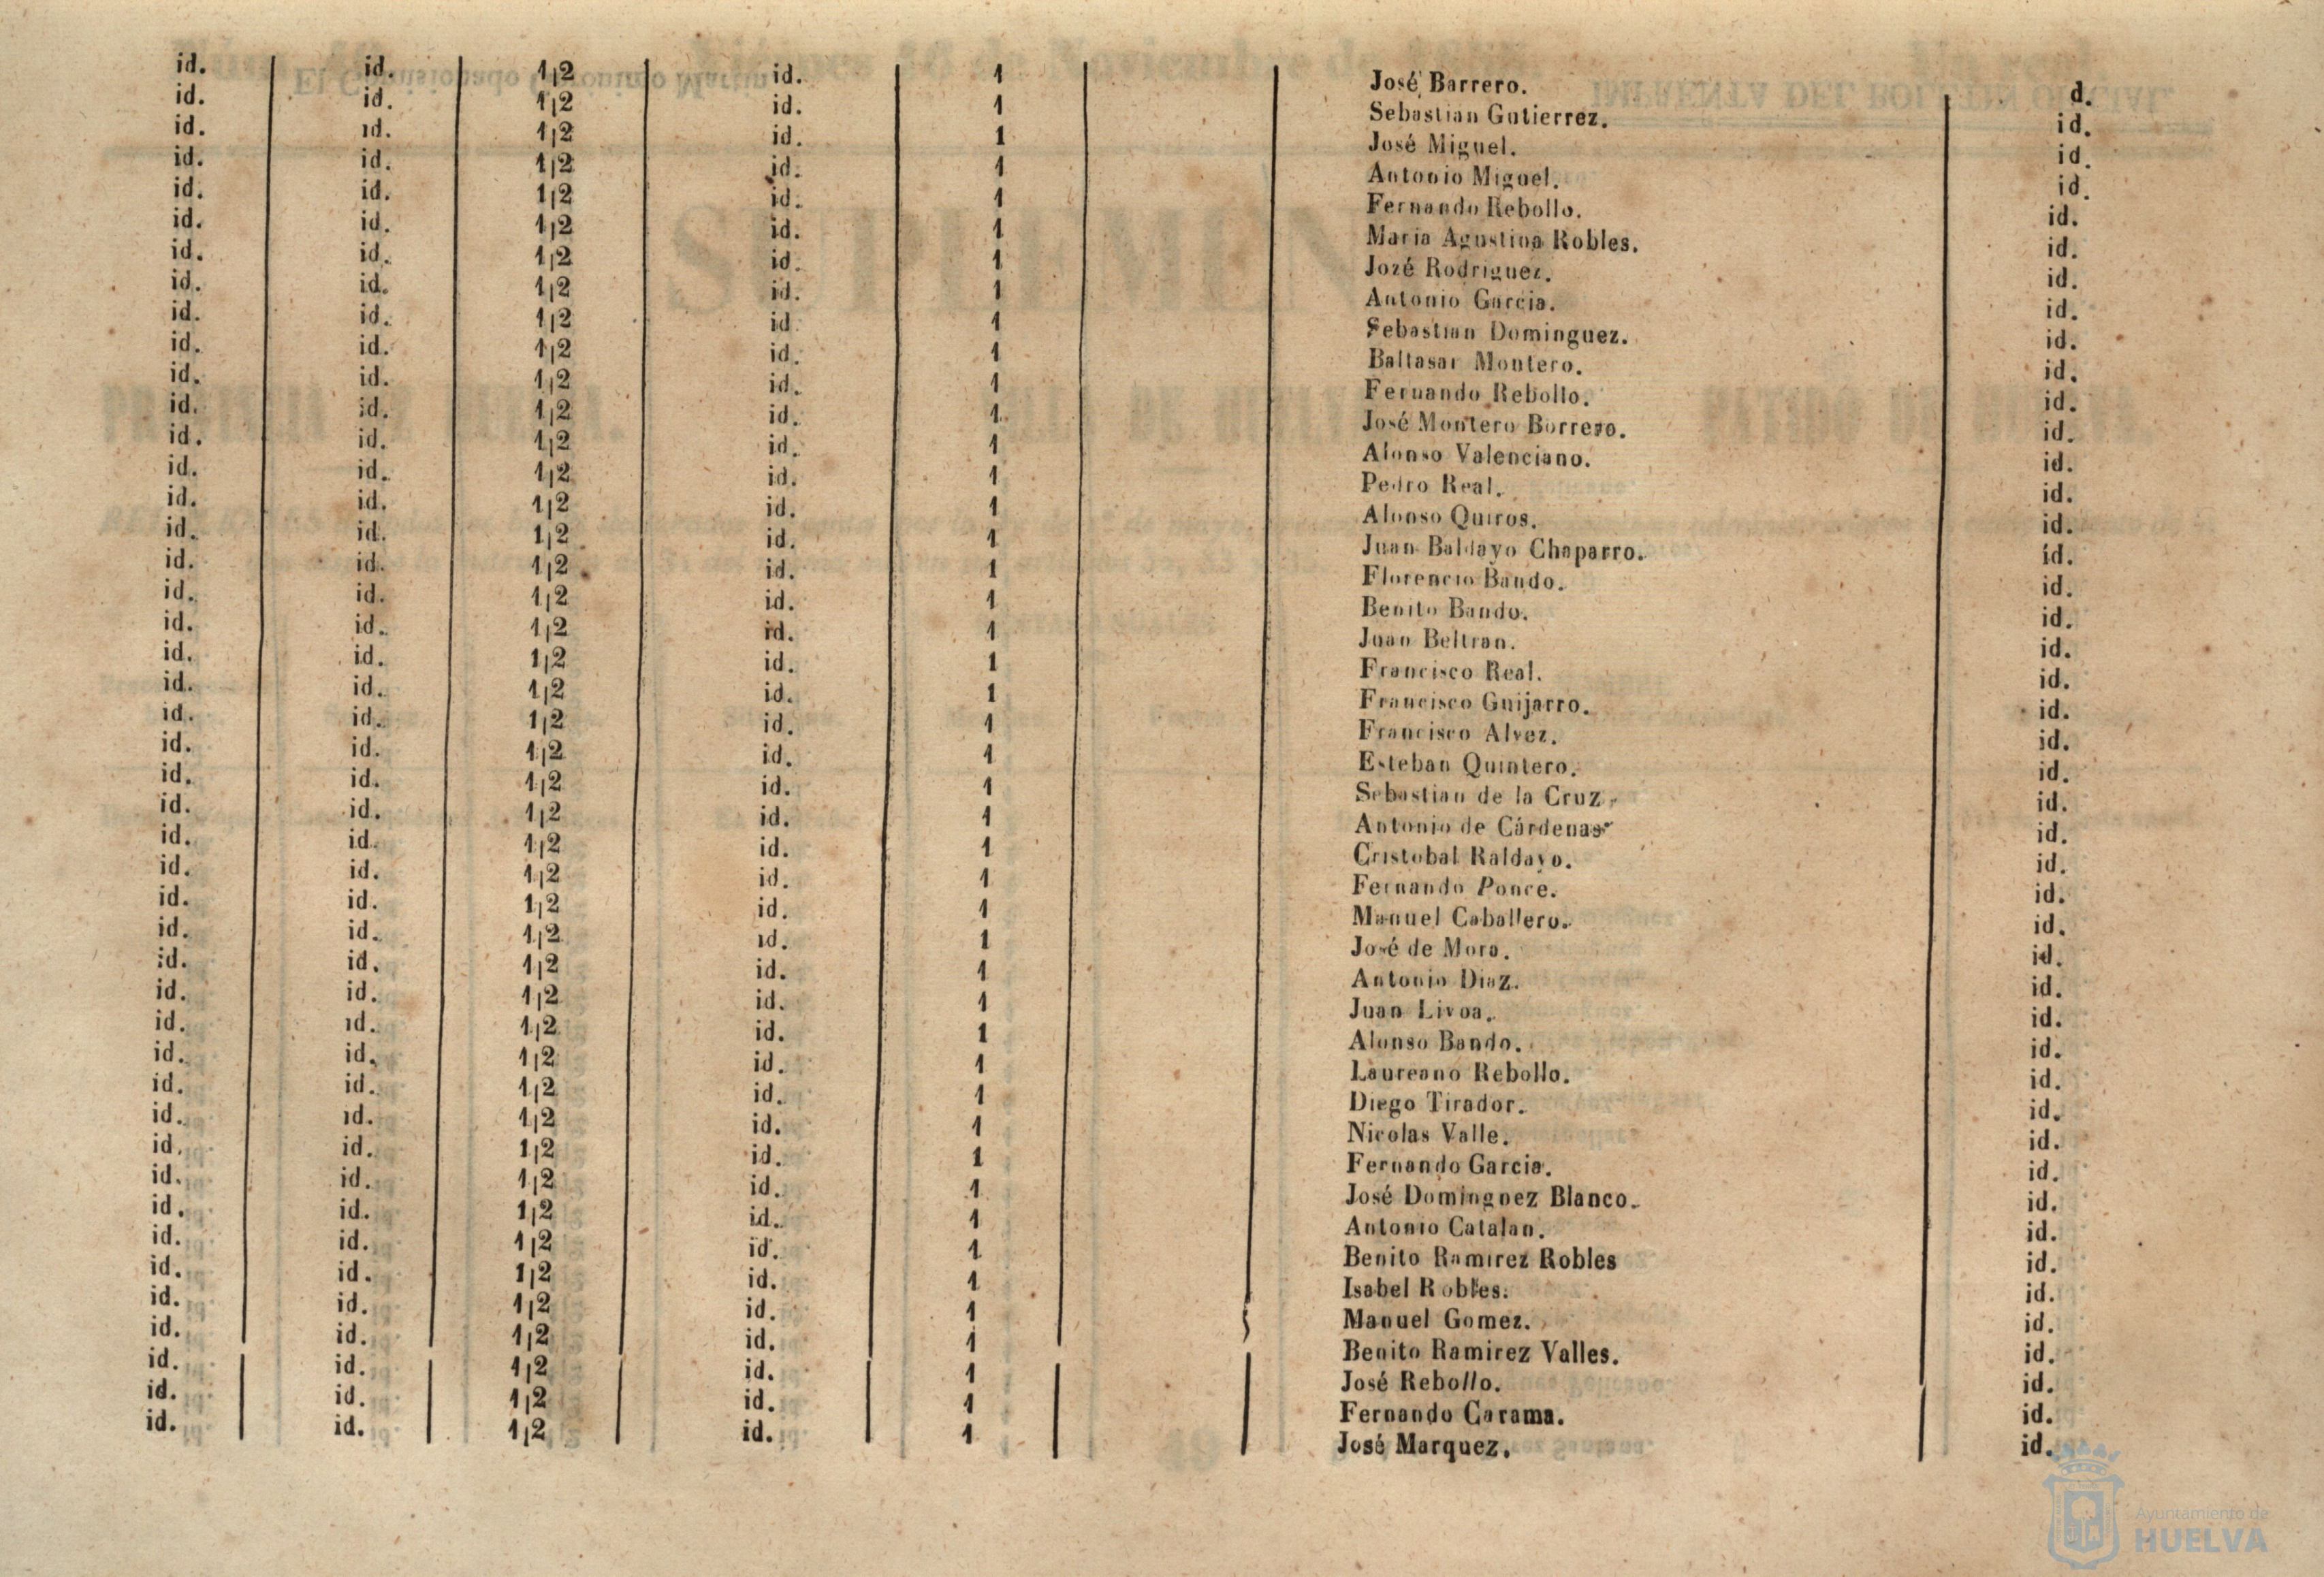 id. id. 1,2 id. 1 José Barrero. d.
id. id. 1,2 id. 1 Sebastian Gutierrez. id.
id. id. 1,2 id. 1 José Miguel. id.
id. id. 1,2 id. 1 Antonio Miguel. id.
id. id. 1,2 id. 1 Fernando Rebollo. id.
id. id. 1,2 id. 1 Maria Agustina Robles. id.
id. id. 1,2 id. 1 Jozé Rodriguez. id.
id. id. 1,2 id. 1 Antonio Garcia. id.
id. id. 1,2 id. 1 Sebastian Dominguez. id.
id. id. 1,2 id. 1 Baltasar Montero. id.
id. id. 1,2 id. 1 Fernando Rebollo. id.
id. id. 1,2 id. 1 José Montero Borrero. id.
id. id. 1,2 id. 1 Alonso Valenciano. id.
id. id. 1,2 id. 1 Pedro Real. id.
id. id. 1,2 id. 1 Alonso Quiros. id.
id. id. 1,2 id. 1 Juan Baldayo Chaparro. id.
id. id. 1,2 id. 1 Florencio Bando. id.
id. id. 1,2 id. 1 Benito Bando. id.
id. id. 1,2 id. 1 Juan Beltran. id.
id. id. 1,2 id. 1 Francisco Real. id.
id. id. 1,2 id. 1 Francisco Guijarro. id.
id. id. 1,2 id. 1 Francisco Alvez. id.
id. id. 1,2 id. 1 Esteban Quintero. id.
id. id. 1,2 id. 1 Sebastian de la Cruz. id.
id. id. 1,2 id. 1 Antonio de Cárdenas id.
id. id. 1,2 id. 1 Cristobal Raldayo. id.
id. id. 1,2 id. 1 Fernando Ponce. id.
id. id. 1,2 id. 1 Manuel Caballero. id.
id. id. 1,2 id. 1 José de Mora. id.
id. id. 1,2 id. 1 Antonio Diaz. id.
id. id. 1,2 id. 1 Juan Livoa. id.
id. id. 1,2 id. 1 Alonso Bando. id.
id. id. 1,2 id. 1 Laureano Rebollo. id.
id. id. 1,2 id. 1 Diego Tirador. id.
id. id. 1,2 id. 1 Nicolas Valle. id.
id. id. 1,2 id. 1 Fernando Garcia. id.
id. id. 1,2 id. 1 José Dominguez Blanco. id.
id. id. 1,2 id. 1 Antonio Catalan. id.
id. id. 1,2 id. 1 Benito Ramirez Robles id.
id. id. 1,2 id. 1 Isabel Robles. id.
id. id. 1,2 id. 1 Manuel Gomez. id.
id. id. 1,2 id. 1 Benito Ramirez Valles. id.
id. id. 1,2 id. 1 José Rebollo. id.
id. id. 1,2 id. 1 Fernando Carama. id.
id. id. 1,2 id. 1 José Marquez. id.
Ayuntamiento de
HUELVA